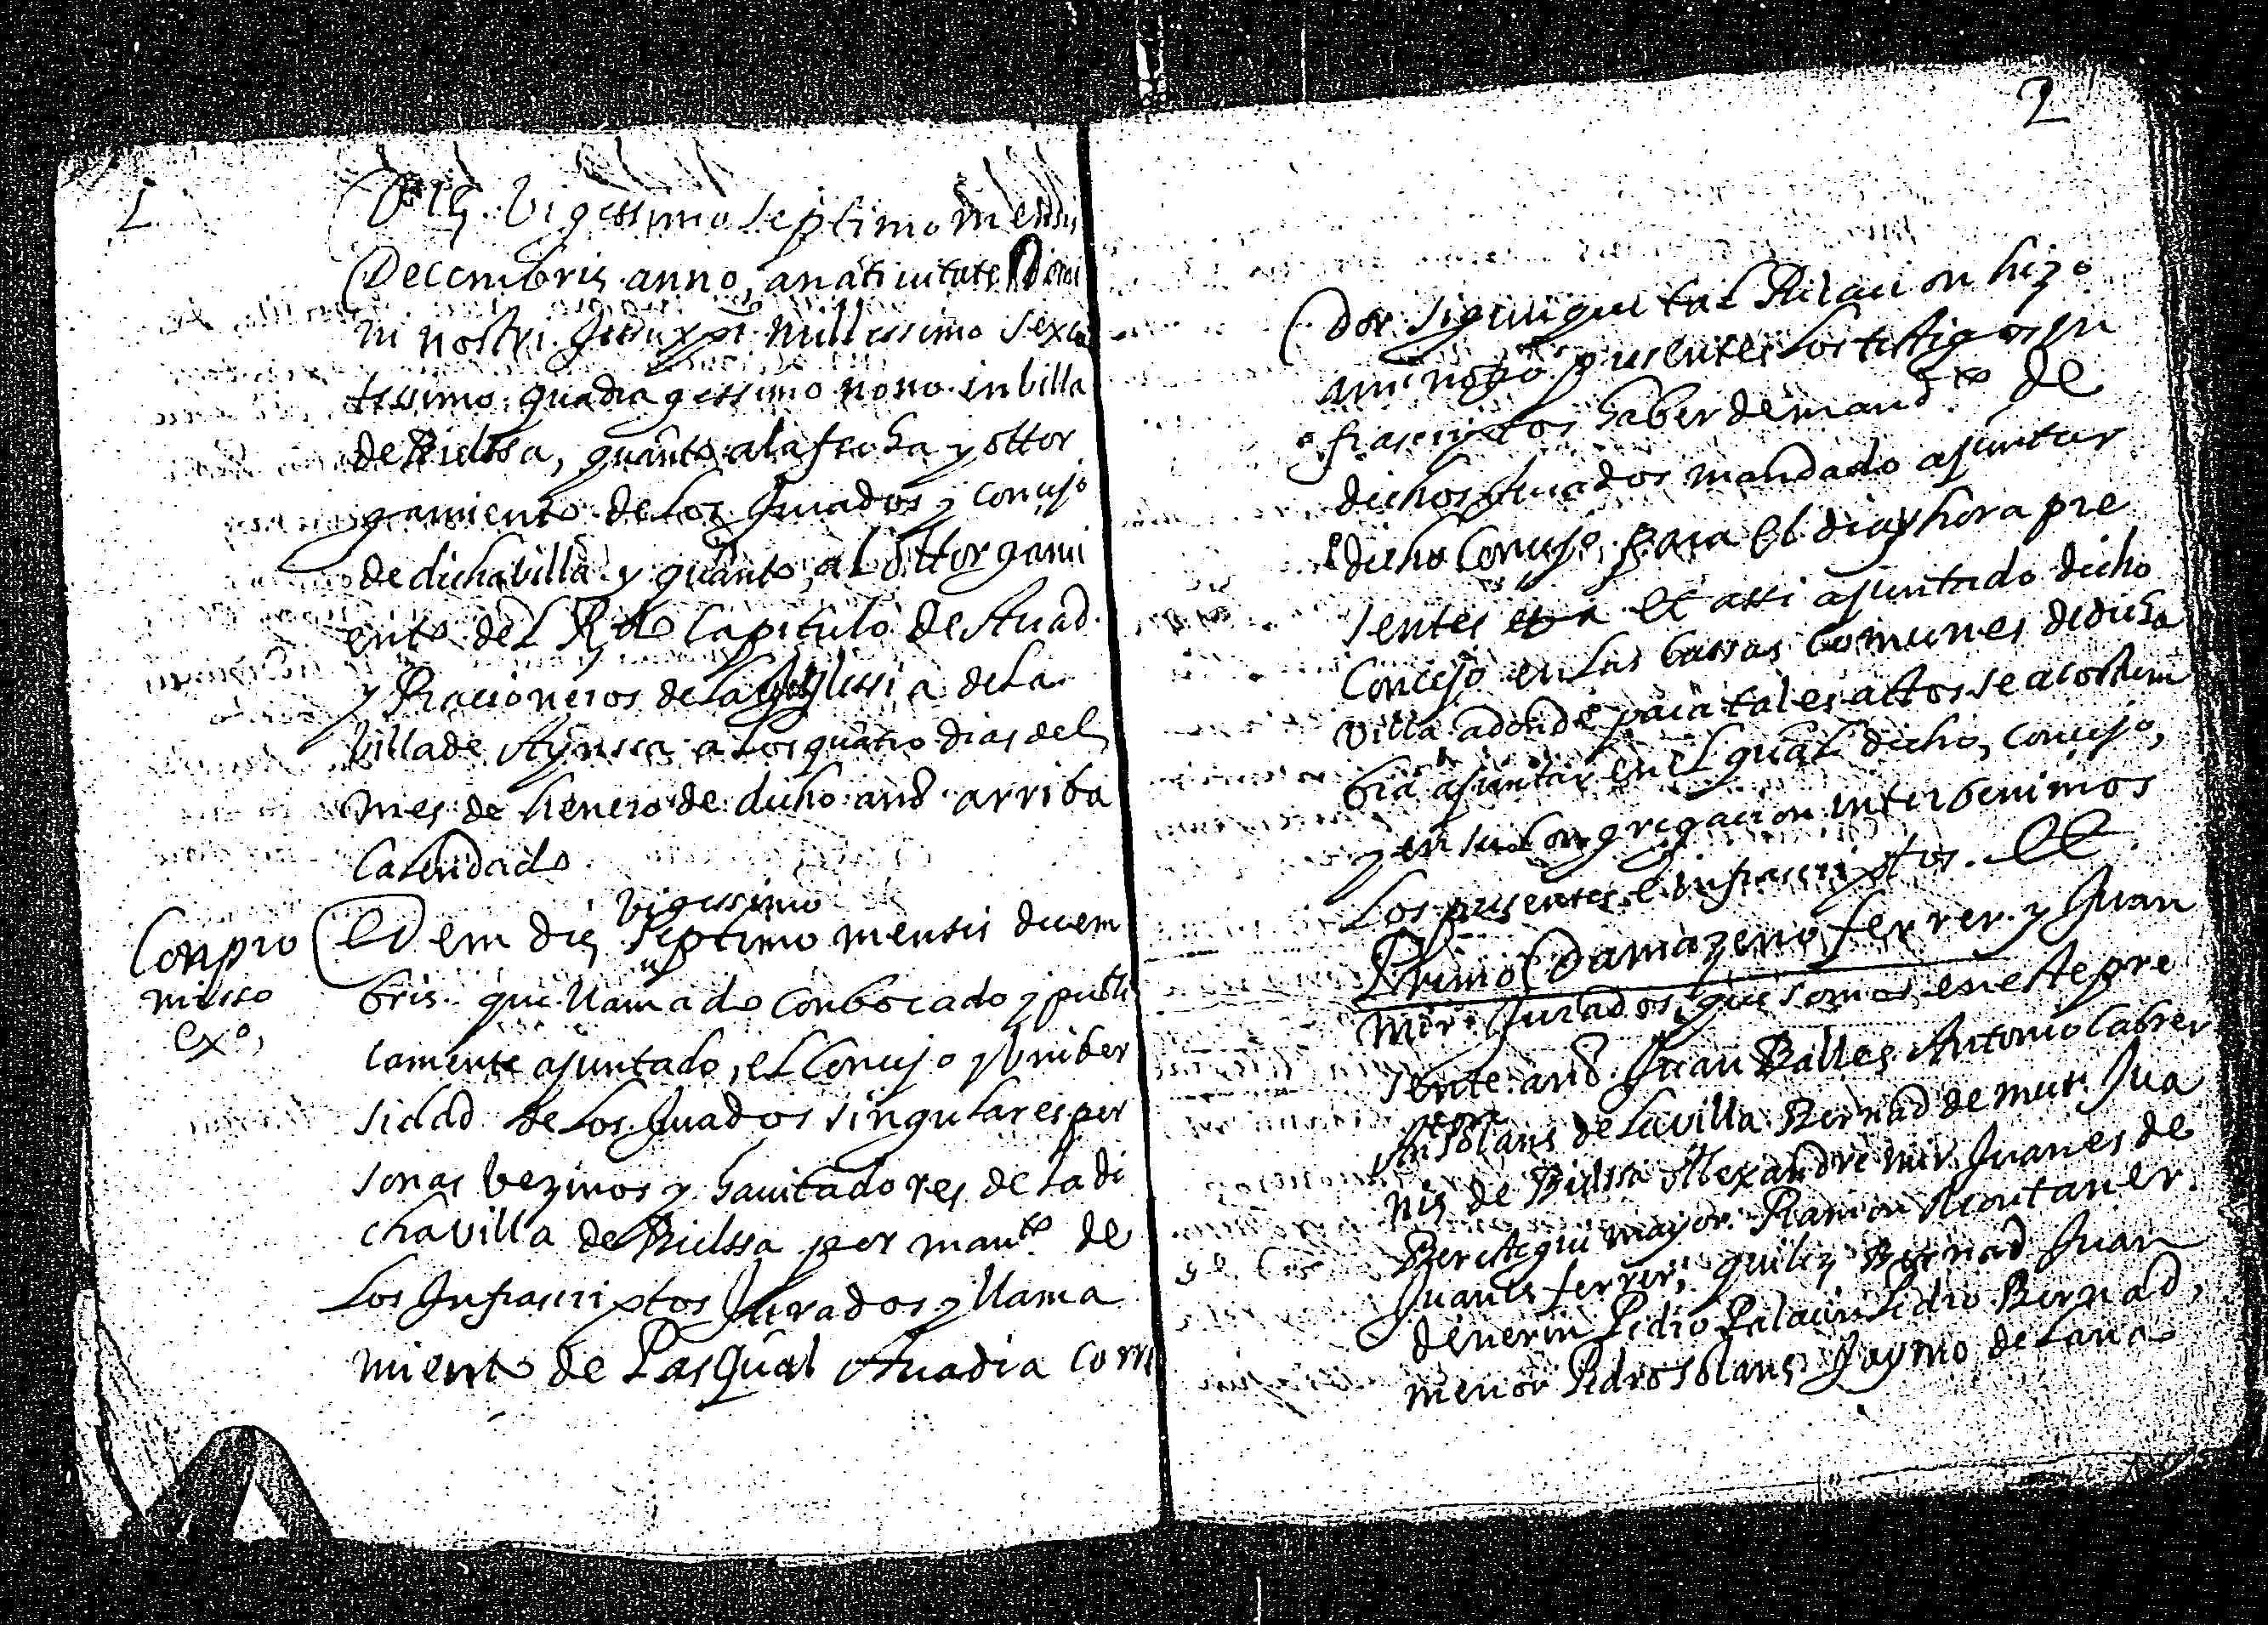 1
Die vigessimo septimo mensis
Decembris anno, a natiuitate Domi
ni nostri Jesu xpi millessimo sexcen
tessimo quadragessimo nono in billa
de Bielssa, quanto a la fecha y ottor
gamiento de los Jurados y Concejo
de dicha billa y quanto, al ottorgami
ento del Rdo Capitulo de Auad
y Racioneros de la Yglessia de la
billa de Aynssa a los quatro dias del
mes de henero de dicho año arriba
Calendado
Conpro
misso
exo,
vigessimo
Eodem die septimo mensis decem
bris que llamado Conbocado y publi
camente ajuntado, el Concejo y Vniber
sidad de los Jurados singulares per
sonas bezinos y hauitadores de la di
cha villa de Bielssa por manto de
los Infrascriptos Jurados y llama
miento de Pasqual Auadia Corre
2
Dor sigun que tal Relacion hizo
a mi noto. presentes los testigos in
frascriptos haber de mandto de
dichos Jurados mandado ajuntar
dicho Concejo, para el dia y hora pre
sentes et assi ajuntado dicho
Concejo en las cassas Comunes de dicha
villa adonde para tales actos se acostum
bra ajuntar en el qual dicho, Concejo,
y en su Congregacion interbenimos
los presentes e infrascriptos. Et
Primo Damazeno ferrer y Juan
mir Jurados, que somos en este pre
sente año. Juan Balles Antonio Cabrer
Solans de la villa Bernad de mur Jua
nis de Bielssa Alexandre mir Juanes de
Berestegui mayor Ramon Montaner
Juanes ferrer, quilez Bernad Juan
de nerin Pedro Palacin Pedro Bernad,
menor Pedro Solans Jaymo de lana